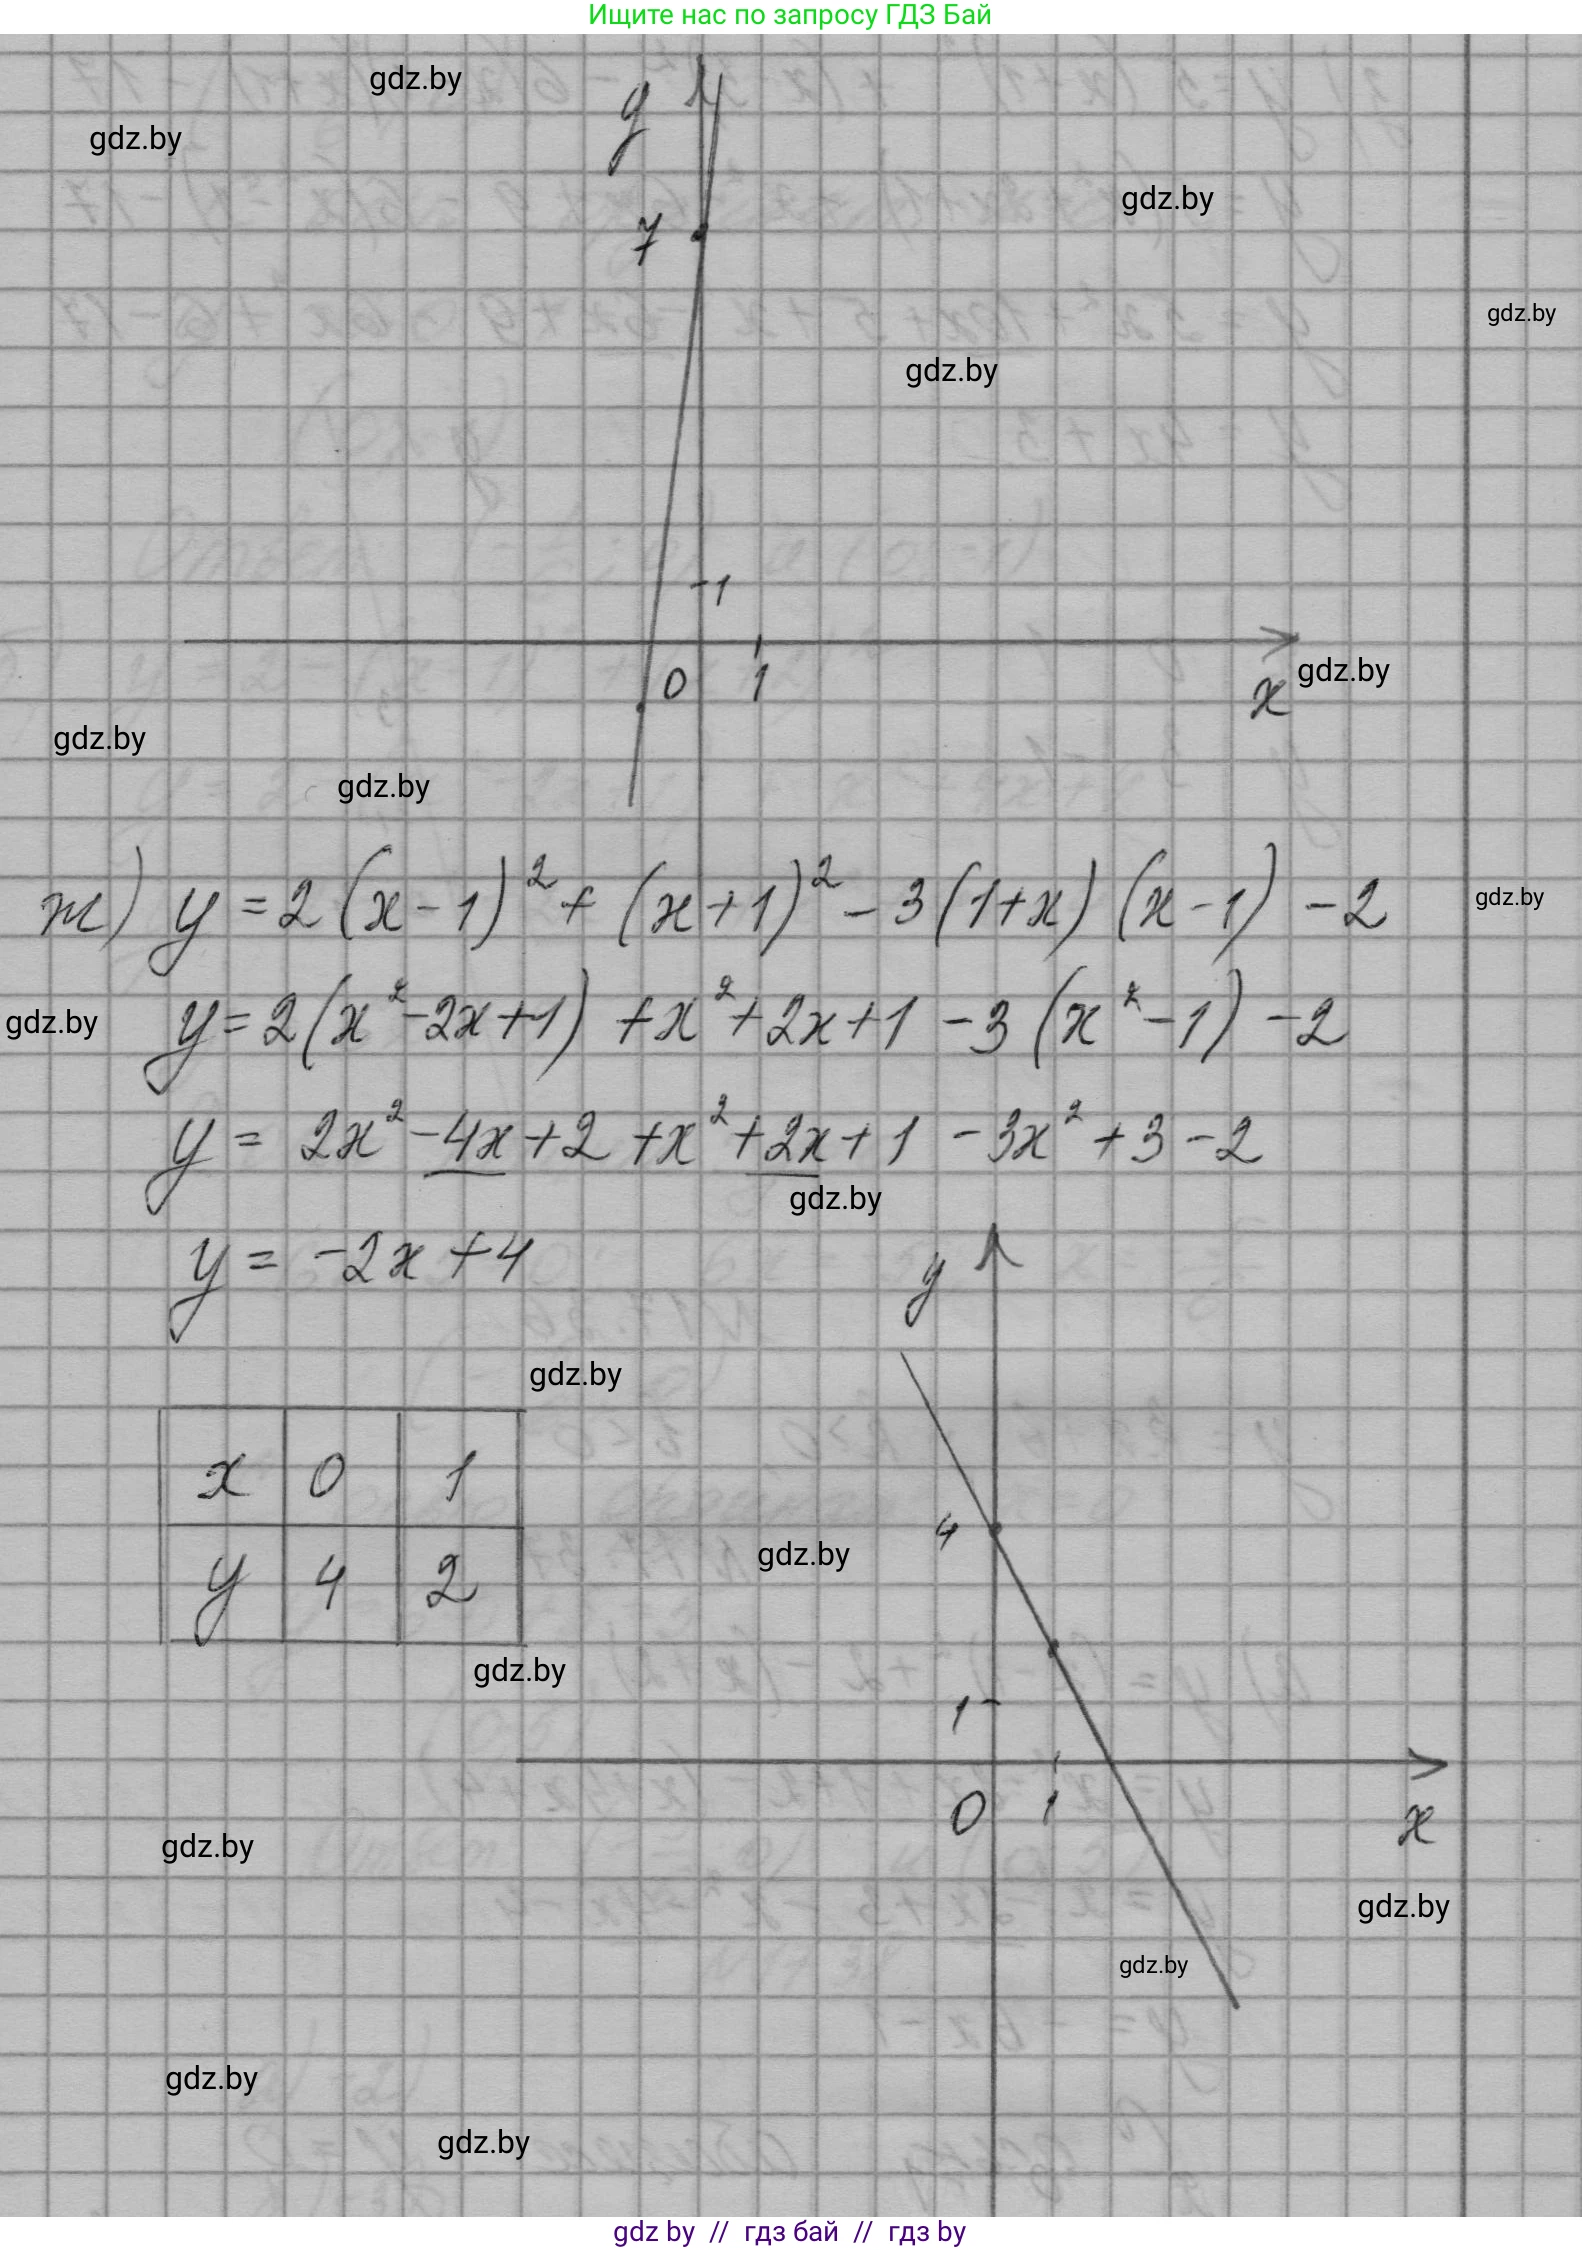 Ищите нас по запросу ГДЗ Бай
gdz.by
gdz.by
gdz.by
gdz.by
gdz.by
y
7
1
0 1
x
gdz.by
gdz.by
gdz.by
ж) y = 2(x-1)² + (x+1)² - 3(1+x)(x-1) - 2
gdz.by
gdz.by
y = 2(x²-2x+1) + x² + 2x + 1 - 3(x²-1) - 2
y = 2x² - 4x + 2 + x² + 2x + 1 - 3x² + 3 - 2
gdz.by
y = -2x + 4
y
gdz.by
x 0 1
y 4 2
4
gdz.by
gdz.by
1
0 1
x
gdz.by
gdz.by
gdz.by
gdz.by
gdz.by
gdz by // гдз бай // гдз by